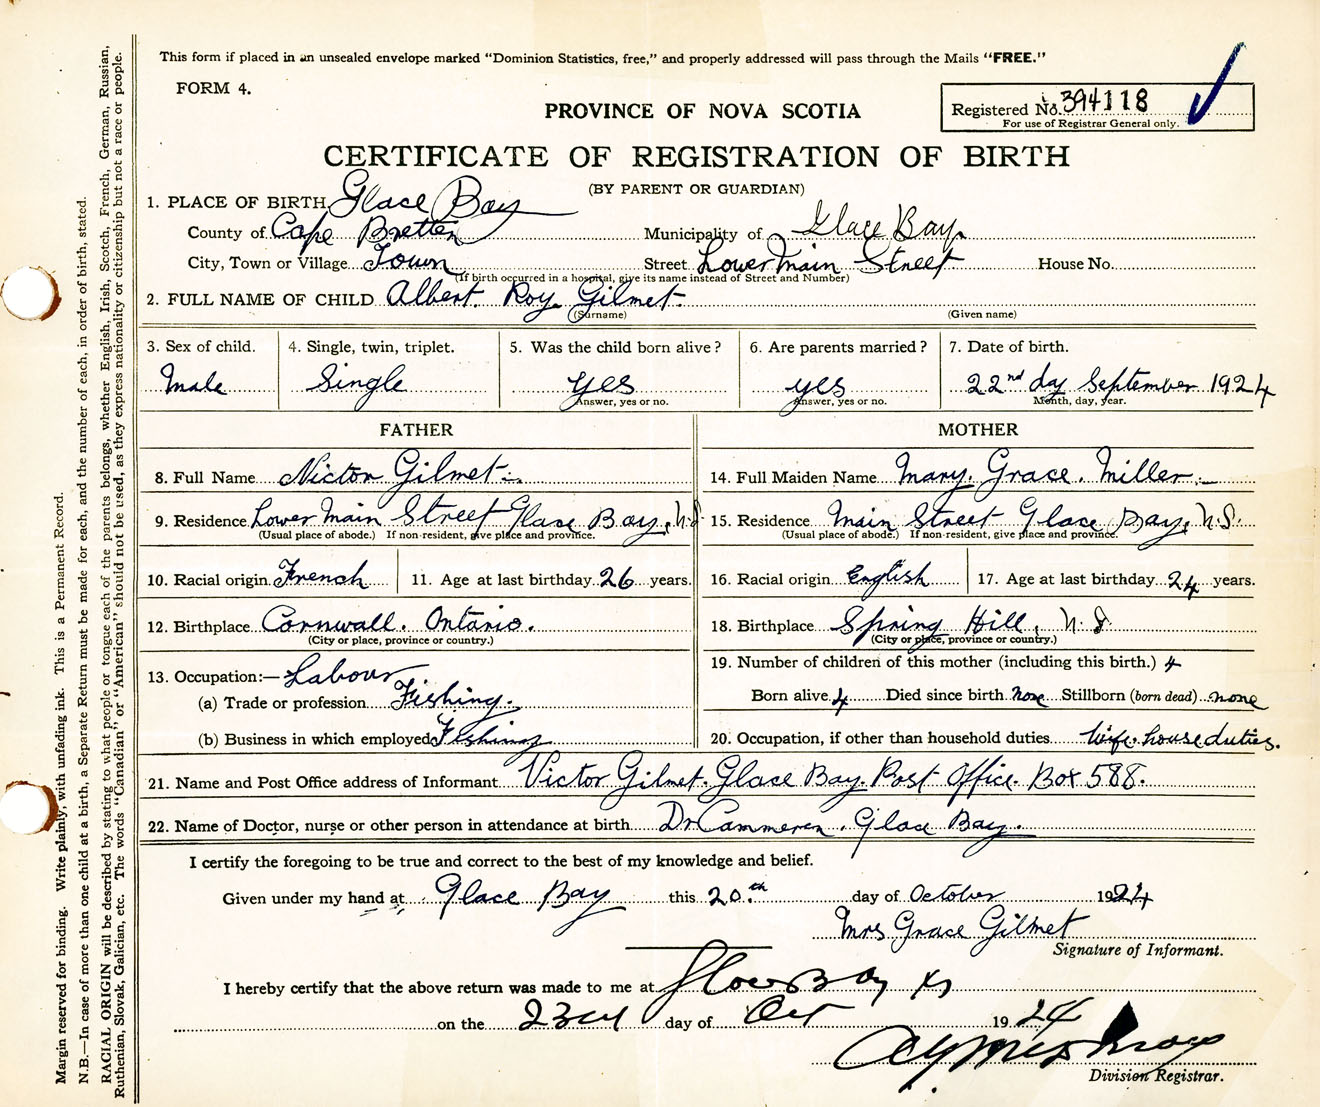 This form if placed in an unsealed envelope marked "Dominion Statistics, free," and properly addressed will pass through the Mails "FREE."
FORM 4.
Registered No. 394118
For use of Registrar General only.
PROVINCE OF NOVA SCOTIA
CERTIFICATE OF REGISTRATION OF BIRTH
(BY PARENT OR GUARDIAN)
1. PLACE OF BIRTH Glace Bay
County of Cape Bretten Municipality of Glace Bay
City, Town or Village Town Street Lower Main Street House No.
(If birth occurred in a hospital, give its name instead of Street and Number)
2. FULL NAME OF CHILD Albert Roy Gilmet
(Surname) (Given name)
3. Sex of child. 4. Single, twin, triplet. 5. Was the child born alive? 6. Are parents married? 7. Date of birth.
Male Single yes yes 22nd day September 1924
Answer, yes or no. Answer, yes or no. Month, day, year.
FATHER MOTHER
8. Full Name Victor Gilmet 14. Full Maiden Name Mary. Grace. Miller
9. Residence Lower Main Street Glace Bay, N.S 15. Residence Main Street Glace Bay, N.S.
(Usual place of abode.) If non-resident, give place and province. (Usual place of abode.) If non-resident, give place and province.
10. Racial origin French 11. Age at last birthday 26 years. 16. Racial origin English 17. Age at last birthday 24 years.
12. Birthplace Cornwall. Ontario. 18. Birthplace Spring Hill, N.S.
(City or place, province or country.) (City or place, province or country.)
13. Occupation:— Labour 19. Number of children of this mother (including this birth.) 4
(a) Trade or profession Fishing. Born alive 4 Died since birth none Stillborn (born dead) none
(b) Business in which employed Fishing 20. Occupation, if other than household duties wife. house duties.
21. Name and Post Office address of Informant Victor Gilmet. Glace Bay. Post Office. Box 588.
22. Name of Doctor, nurse or other person in attendance at birth Dr Cammeren. Glace Bay.
I certify the foregoing to be true and correct to the best of my knowledge and belief.
Given under my hand at Glace Bay this 20.th day of October 1924
Mrs Grace Gilmet
Signature of Informant.
I hereby certify that the above return was made to me at Glace Bay NS
on the 23rd day of Oct 1924
Division Registrar.
Margin reserved for binding. Write plainly, with unfading ink. This is a Permanent Record.
N.B.—In case of more than one child at a birth, a Separate Return must be made for each, and the number of each, in order of birth, stated.
RACIAL ORIGIN will be described by stating to what people or tongue each of the parents belongs, whether English, Irish, Scotch, French, German, Russian,
Ruthenian, Slovak, Galician, etc. The words "Canadian" or "American" should not be used, as they express nationality or citizenship but not a race or people.